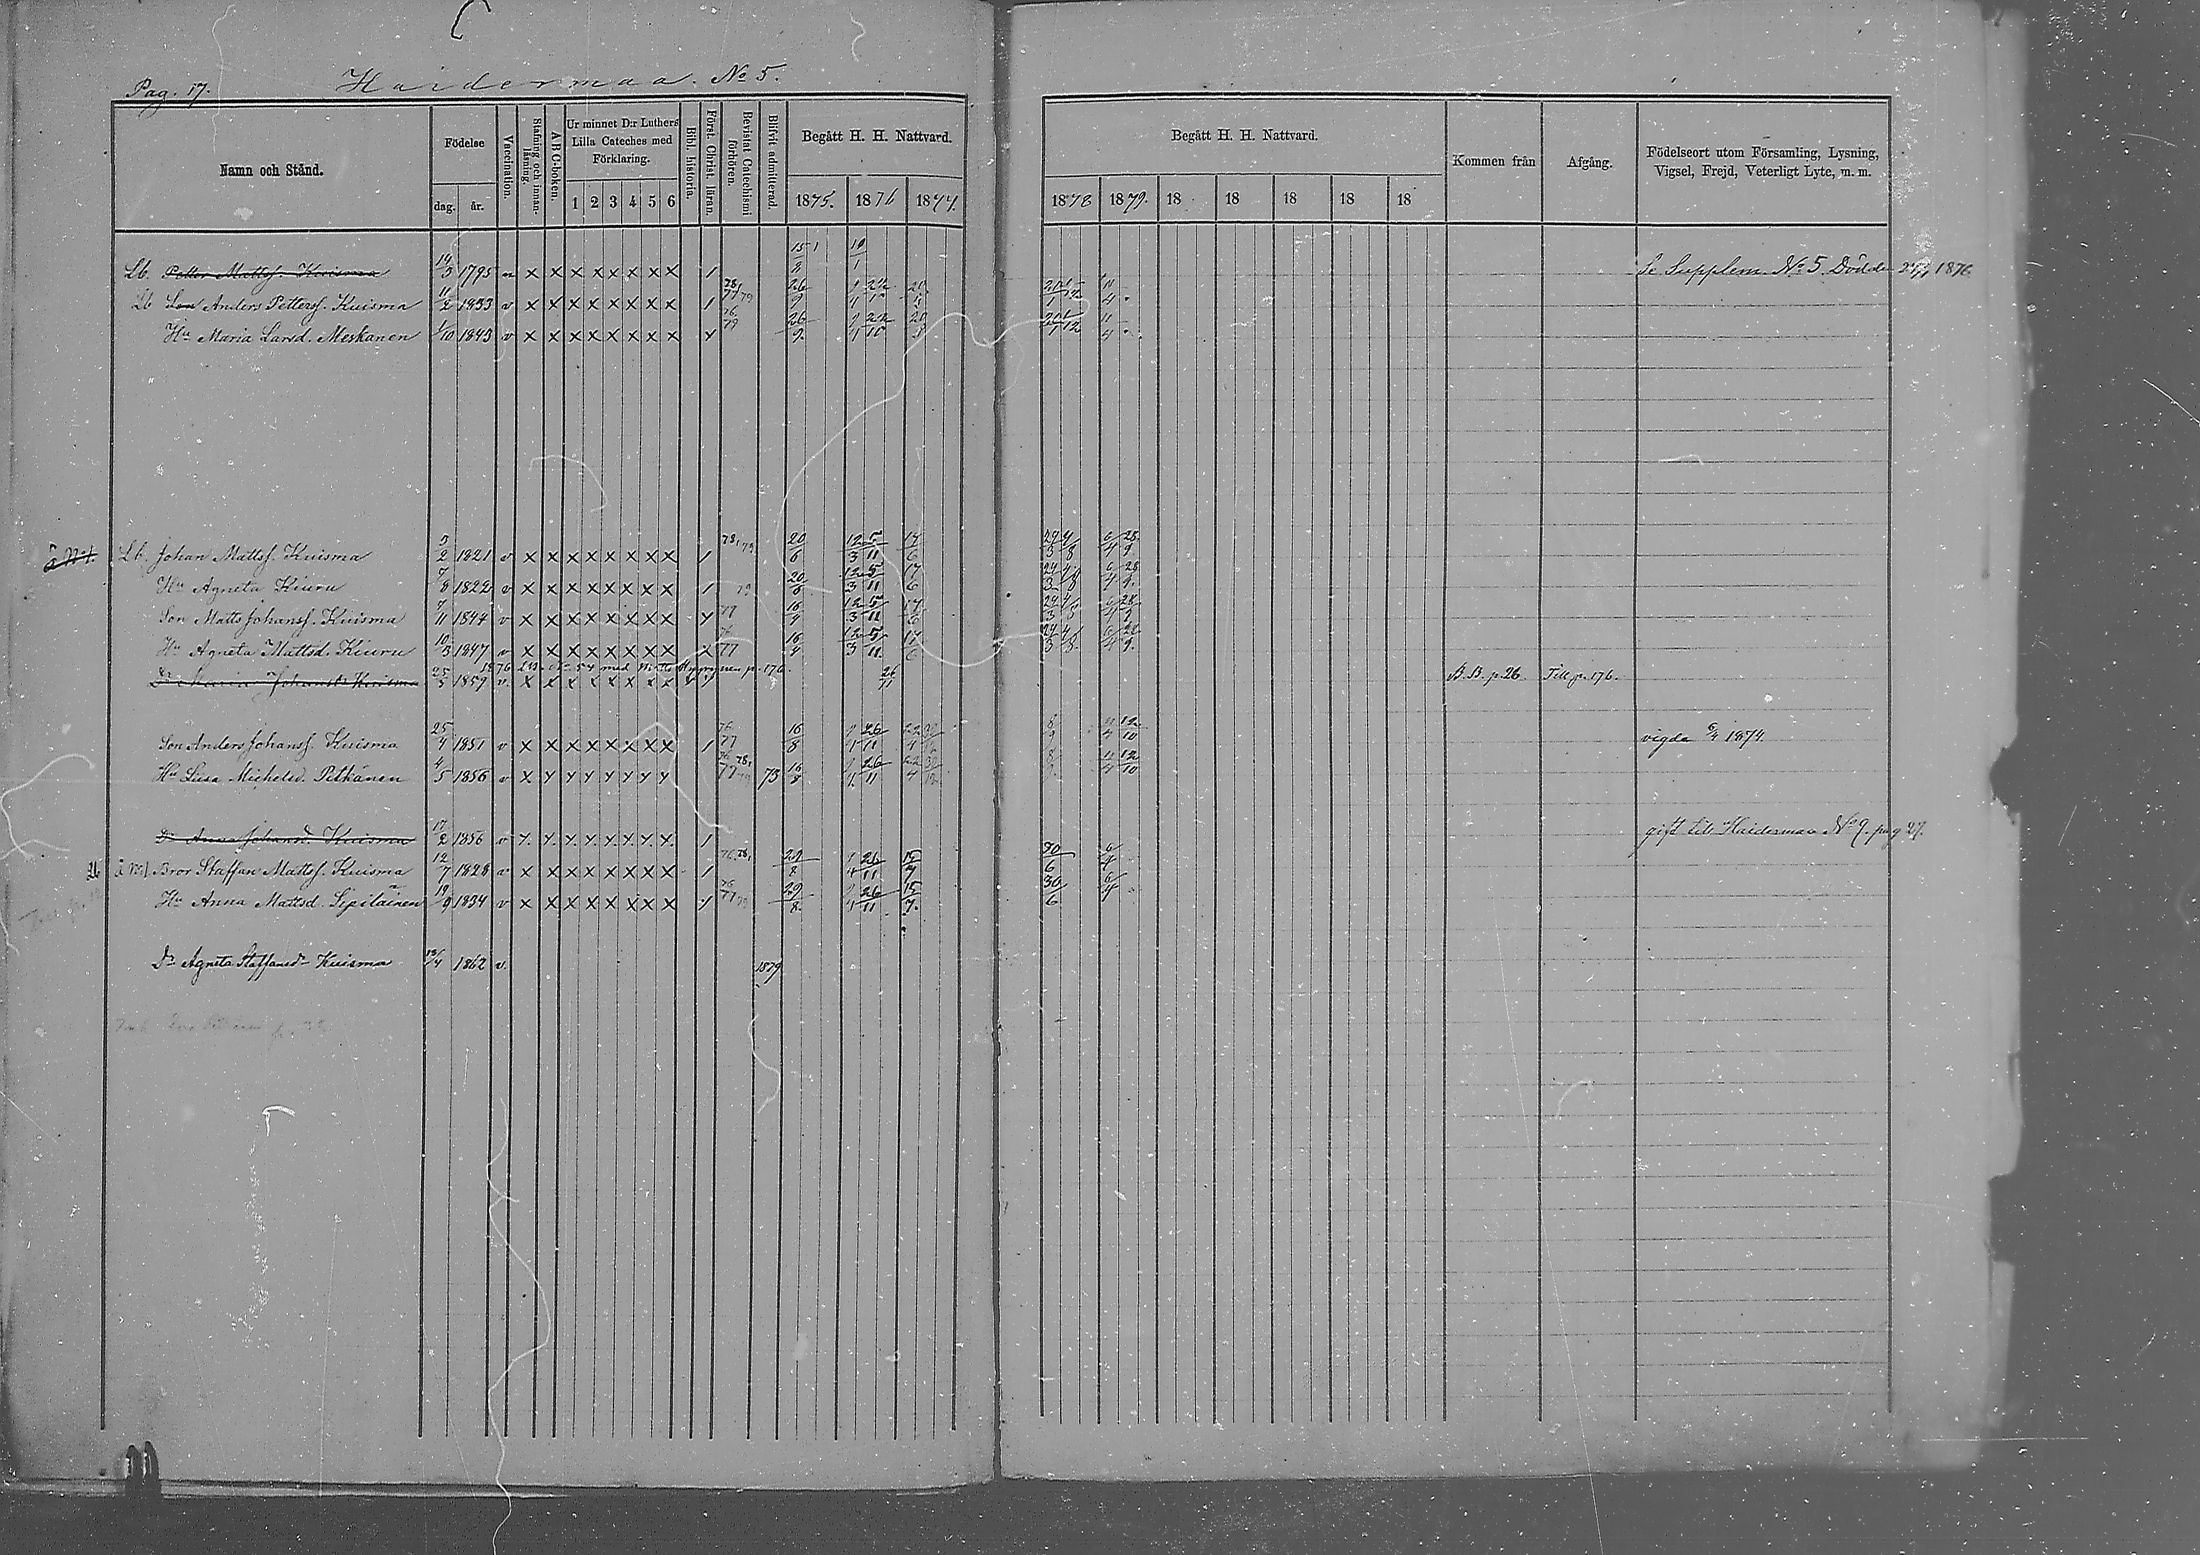 Pag. 17. Haidermaa. No 5.
Namn och Stånd.
Födelse
dag. år.
Vaccination.
Stafning och innanläsning.
A B C-boken.
Ur minnet D:r Luthers
Lilla Cateches med
Förklaring.
1 2 3 4 5 6
Bibl. historia.
Först. Christ. läran.
Bevistat Catechismi förhören.
Blifvit admitterad.
Begått H. H. Nattvard.
1875. 1876 1877.
Begått H. H. Nattvard.
1878 1879. 18 18 18 18 18
Kommen från
Afgång.
Födelseort utom Församling, Lysning,
Vigsel, Frejd, Veterligt Lyte, m. m.
Lb. Petter Mattss. Kuisma 19/3 1795 n x x x x x x x x 1 Se Supplem. No 5. Död 1876
Lb Son Anders Petterss. Kuisma 11/2 1833 v x x x x x x x x 1 26/9
Hu Maria Larsd. Meskanen 1/10 1843 v x x x x x x x x 26/9
Lb. Johan Mattss. Kuisma 3/2 1821 v x x x x x x x x 1 78, 79 20/6 12/3 5/11 17/6 24/3 4/8 6/4 28/9.
Hu Agneta Kiuru 7/8 1822 v x x x x x x x x 1 79 20/6 12/3 5/11 17/6 24/3 4/8 6/4 28/9.
Son Matts Johanss. Kuisma 7/11 1844 v x x x x x x x x 77 16/4 12/3 5/11 17/6 24/3 6/4 28/9
Hu Agneta Mattsd. Kiuru 10/3 1847 v x x x x x x x x 77 16/4 12/3 5/11 17/6 24/3 6/4 28/9.
1876 med Matts p. 176.
Dr Maria Johansd. Kuisma 25/5 1859 v. x x x x x x x x 26/11 B. B. p. 26. Till p. 176.
Son Anders Johanss. Kuisma 25/4 1851 v x x x x x x x x 1 76 77 16/8 26/11 22/4 12/10 vigda 6/4 1874.
Hu Lisa Michelsd. Pitkänen 4/5 1856 v x y y y y y y y 76 78, 77 73 16/8 26/11 22/4 12/10
Dr Anna Johansd. Kuisma 17/2 1856 v y. y. y. y. y. y. y. y. 1 gift till Haidermaa No 9. pag 27.
Lb Bror Staffan Mattss. Kuisma 12/7 1828 v x x x x x x x x 1 29/8 26/11 15/7 30/6 6/4
Hu Anna Mattsd. Sipiläinen 19/9 1834 v x x x x x x x x 1 76 77 79 29/8. 26/11 15/7. 30/6 6/4
Dr Agneta Staffansdr Kuisma 1862 v. 1879